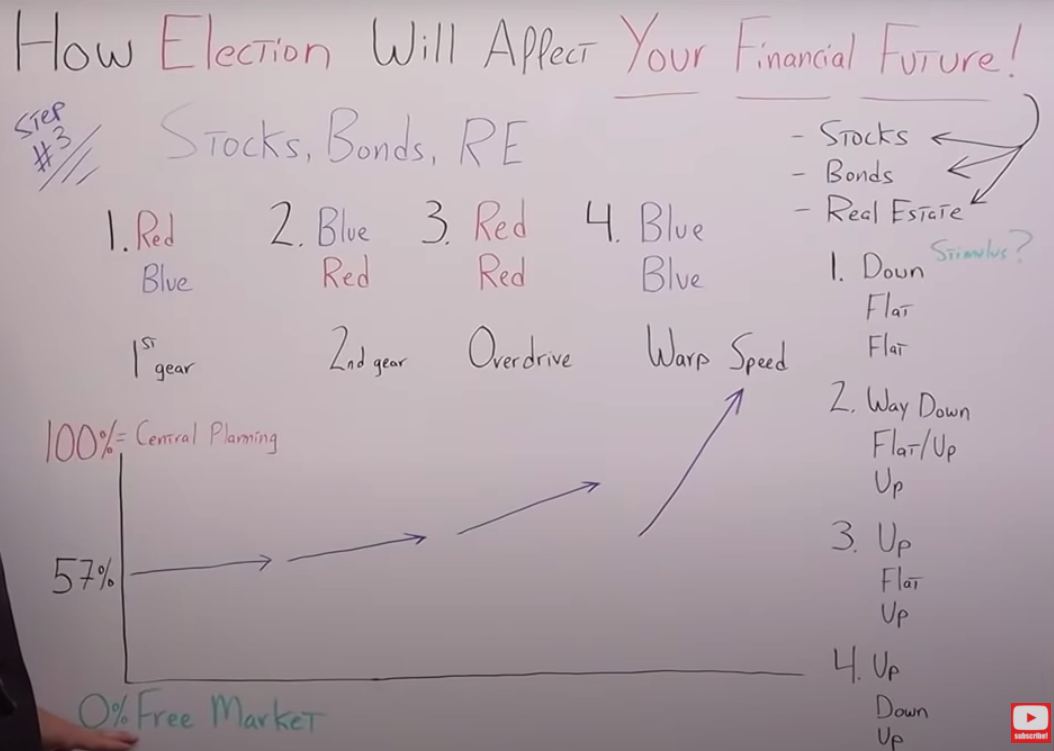 How Election Will Affect Your Financial Future!
Step
#3
Stocks, Bonds, RE
- Stocks
- Bonds
- Real Estate
Stimulus?
1. Red
Blue
2. Blue
Red
3. Red
Red
4. Blue
Blue
1st gear
2nd gear
Overdrive
Warp Speed
100% = Central Planning
57%
0% Free Market
1. Down
Flat
Flat
2. Way Down
Flat/Up
Up
3. Up
Flat
Up
4. Up
Down
Up
subscribe!